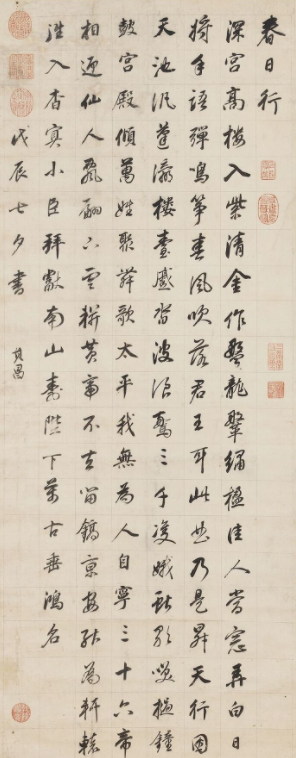 春日行
深宮高樓入紫清金作盤龍擎繡楹佳人當窓弄白日
將手語彈鳴箏春風吹落君王耳此曲乃是昇天行因
天池汎蓬瀛樓臺蹙沓波浪驚三千雙娥獻歌笑撾鐘
鼓宮殿傾萬姓聚舞歌太平我無為人自寧三十六帝
相迎仙人飄翩下雲軿黃帝不去留鎬京安能為軒轅
往入杳冥小臣拜獻南山壽陛下萬古垂鴻名
戊辰七夕書
其昌